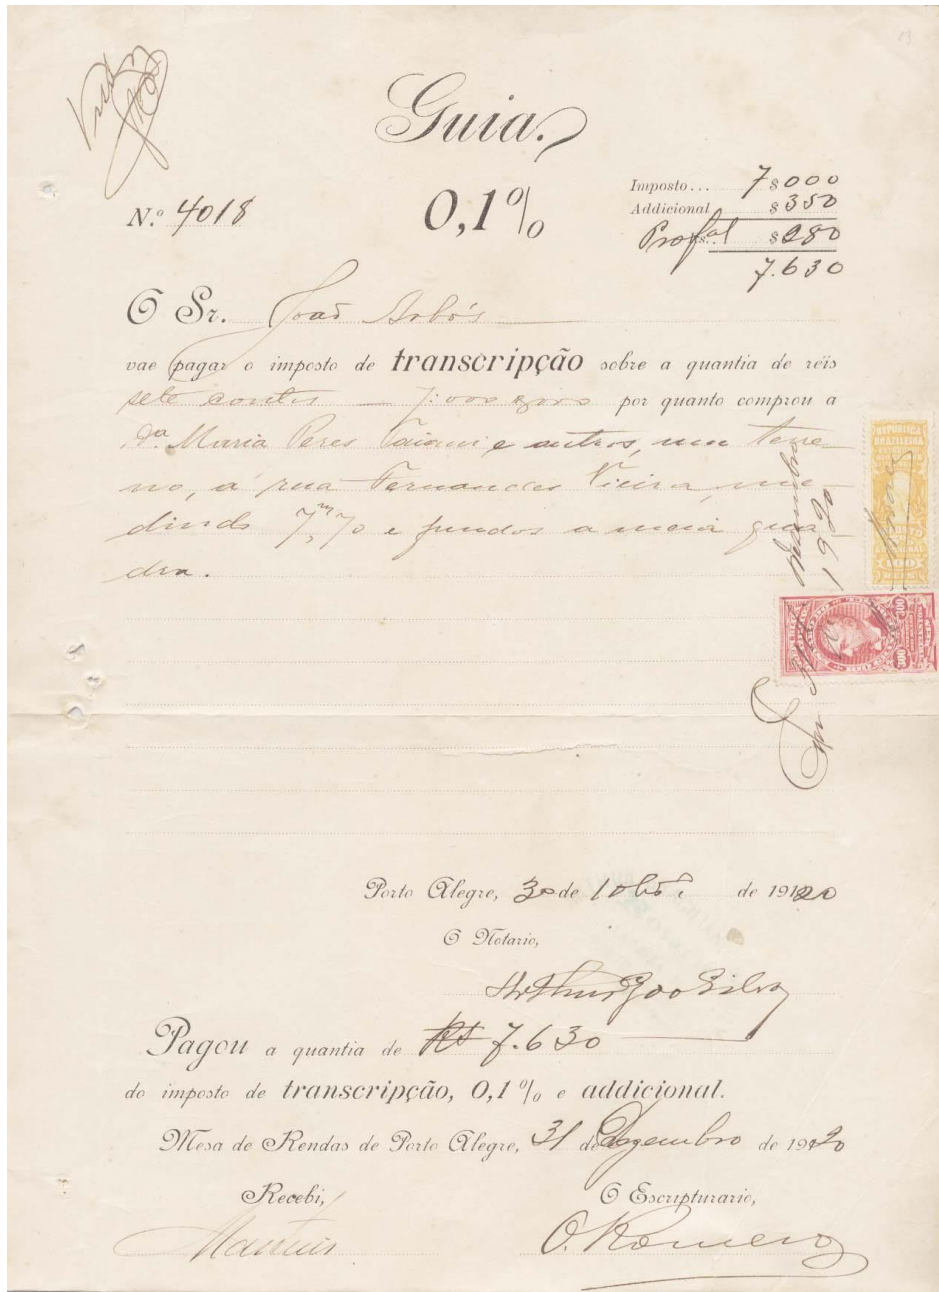 13
Visto
Guia.
Imposto... 7$000
Addicional $350
Profal $280
7.630
N.º 4018
0,1%
O Sr. João Arbós
vae pagar o imposto de transcripção sobre a quantia de réis
sete contos — 7:000$000 por quanto comprou a
Dª Maria Peres e outros, um terre-
no, á rua Fernandes Vieira, me-
dindo 7m,70 e fundos a meia qua-
dra.
REPUBLICA
BRAZILEIRA
100
300
300
Dezembro
1920
Porto Alegre, 30 de 10bro de 1920
O Notario,
Arthur Silva
Pagou a quantia de Rs 7.630
do imposto de transcripção, 0,1% e addicional.
Mesa de Rendas de Porto Alegre, 31 de Dezembro de 1920
Recebi,
O Escripturario,
Martins
O. Romero